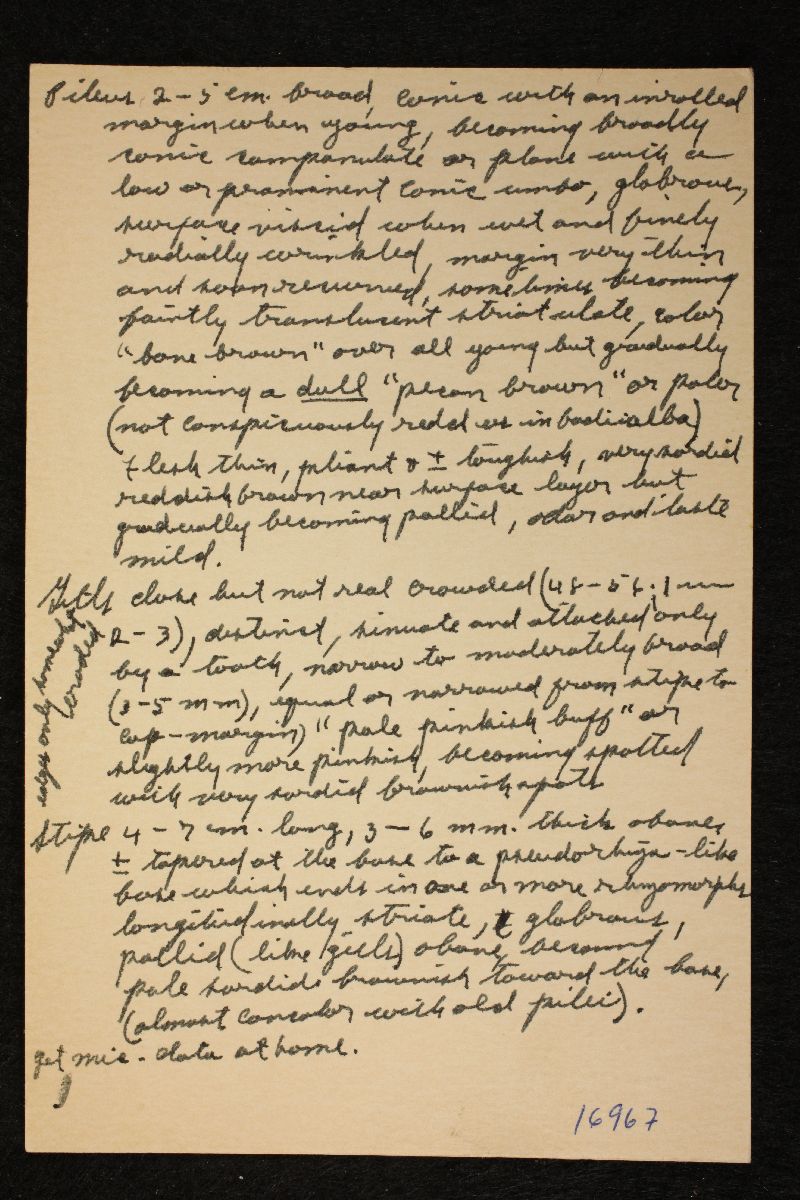 Pileus 2-5 cm. broad, conic with an inrolled
margin when young, becoming broadly
conic campanulate or plane with a
low or prominent conic umbo, glabrous,
surface viscid when wet and finely
radially wrinkled, margin very thin
and soon recurved, sometimes becoming
faintly translucent striatulate, color
"bone brown" over all young but gradually
becoming a dull "pecan brown" or paler
(not conspicuously redd as in badiialba)
Flesh thin, pliant & ± toughish, very sordid
reddish brown near surface layer but
gradually becoming pallid, odor and taste
mild.
Gills close but not real crowded (48-56; 1
2-3), distinct, sinuate and attached only
by a tooth, narrow to moderately broad
(3-5 mm), equal or narrowed from stipe to
cap-margin) "pale pinkish buff" or
slightly more pinkish, becoming spotted
with very sordid brownish spots
edges only somewhat
eroded
Stipe 4-7 cm. long, 3-6 mm. thick above,
± tapered at the base to a pseudorhiza-like
base which ends in one or more rhyzomorphs
longitudinally striate, glabrous,
pallid (like gills) above, becoming
pale sordid brownish toward the base,
(almost concolor with old pilei).
get mic. data at home.
16967